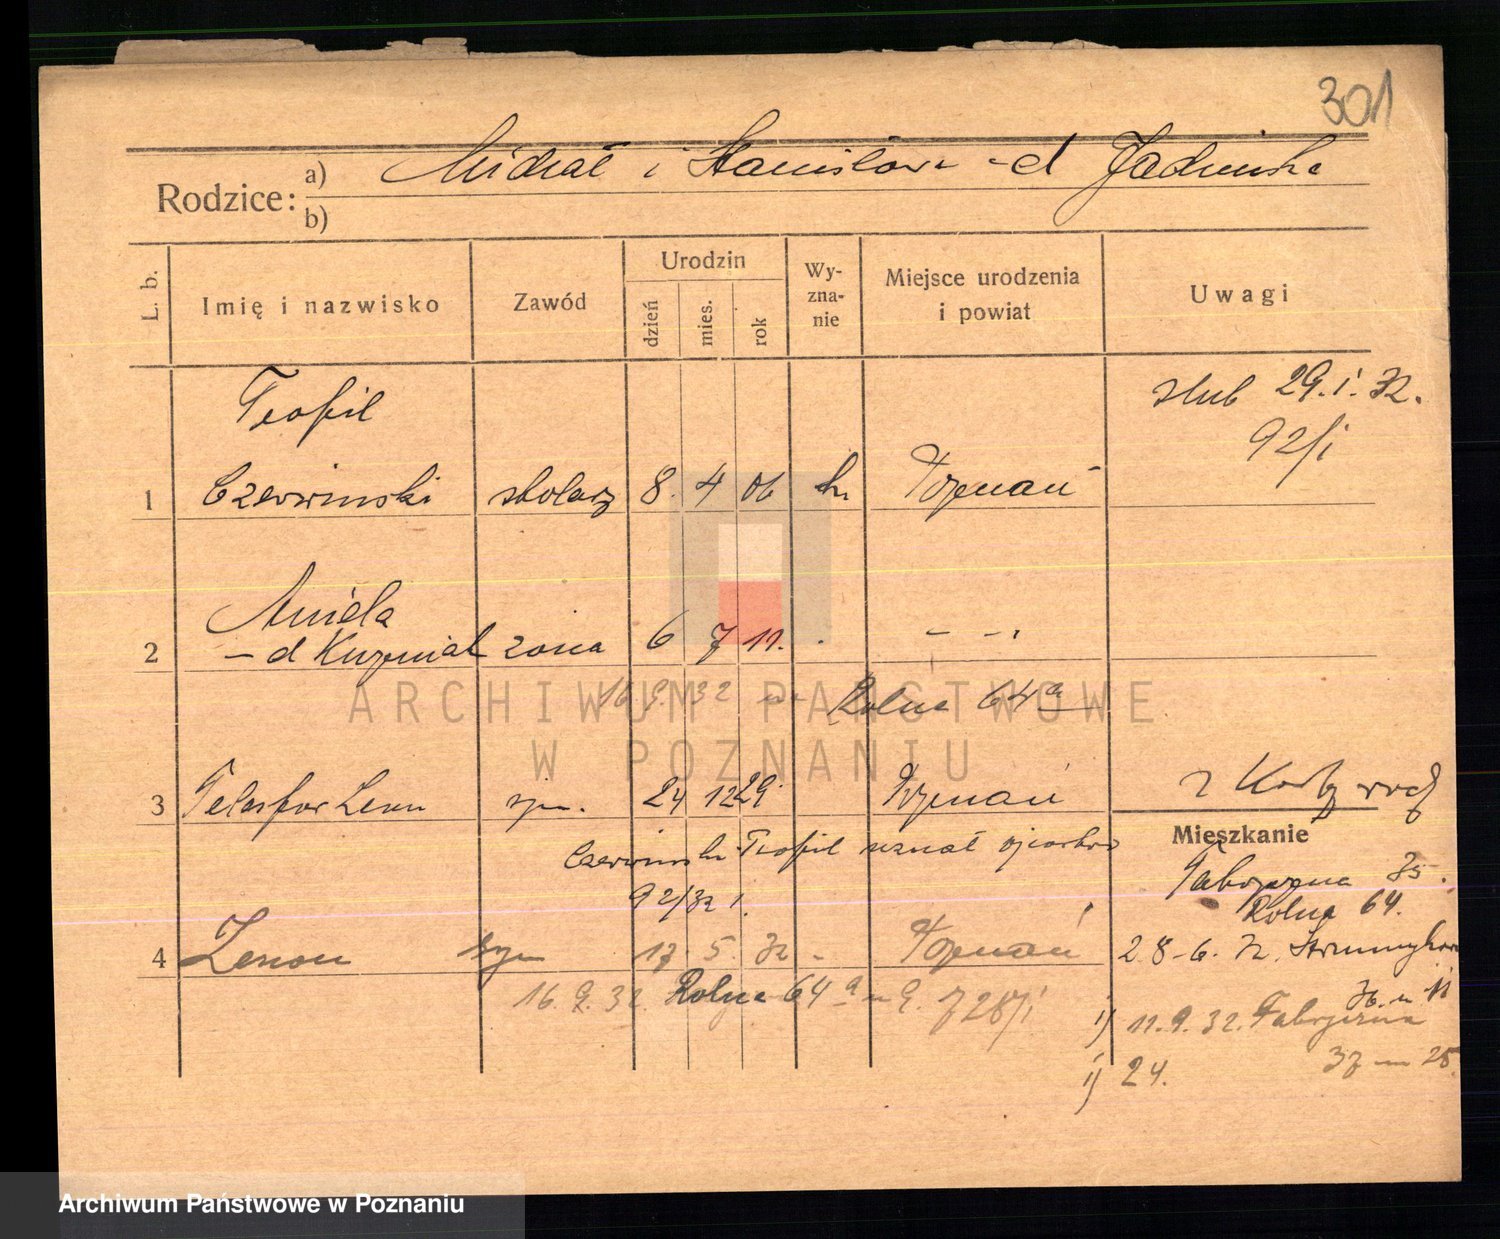 301
Rodzice:
a) Michał i Stanisława - d
b)
L. b.
Imię i nazwisko
Zawód
Urodzin
dzień
mies.
rok
Wy-
zna-
nie
Miejsce urodzenia
i powiat
Uwagi
Teofil
ślub 29. i. 32.
92/i
1 Czerwiński stolarz 8. 4 06 Poznań
Aniela
2 - d żona 6 7 11. - - .
16 9. 32 Rolna 64 a
3 Telesfor Leon syn. 24 12 29 Poznań
z Karty
Czerwiński Teofil uznał ojcostwo
92/32 i.
Mieszkanie
Fabryczna 35.
Rolna 64.
4 Zenon syn 17 5. 32 - Poznań
28-6. 32.
16. 9. 32. Rolna 64 a 728/i
i) 11. 9. 32. Fabryczna
i) 24. 25.
ARCHIWUM PAŃSTWOWE
W POZNANIU
Archiwum Państwowe w Poznaniu